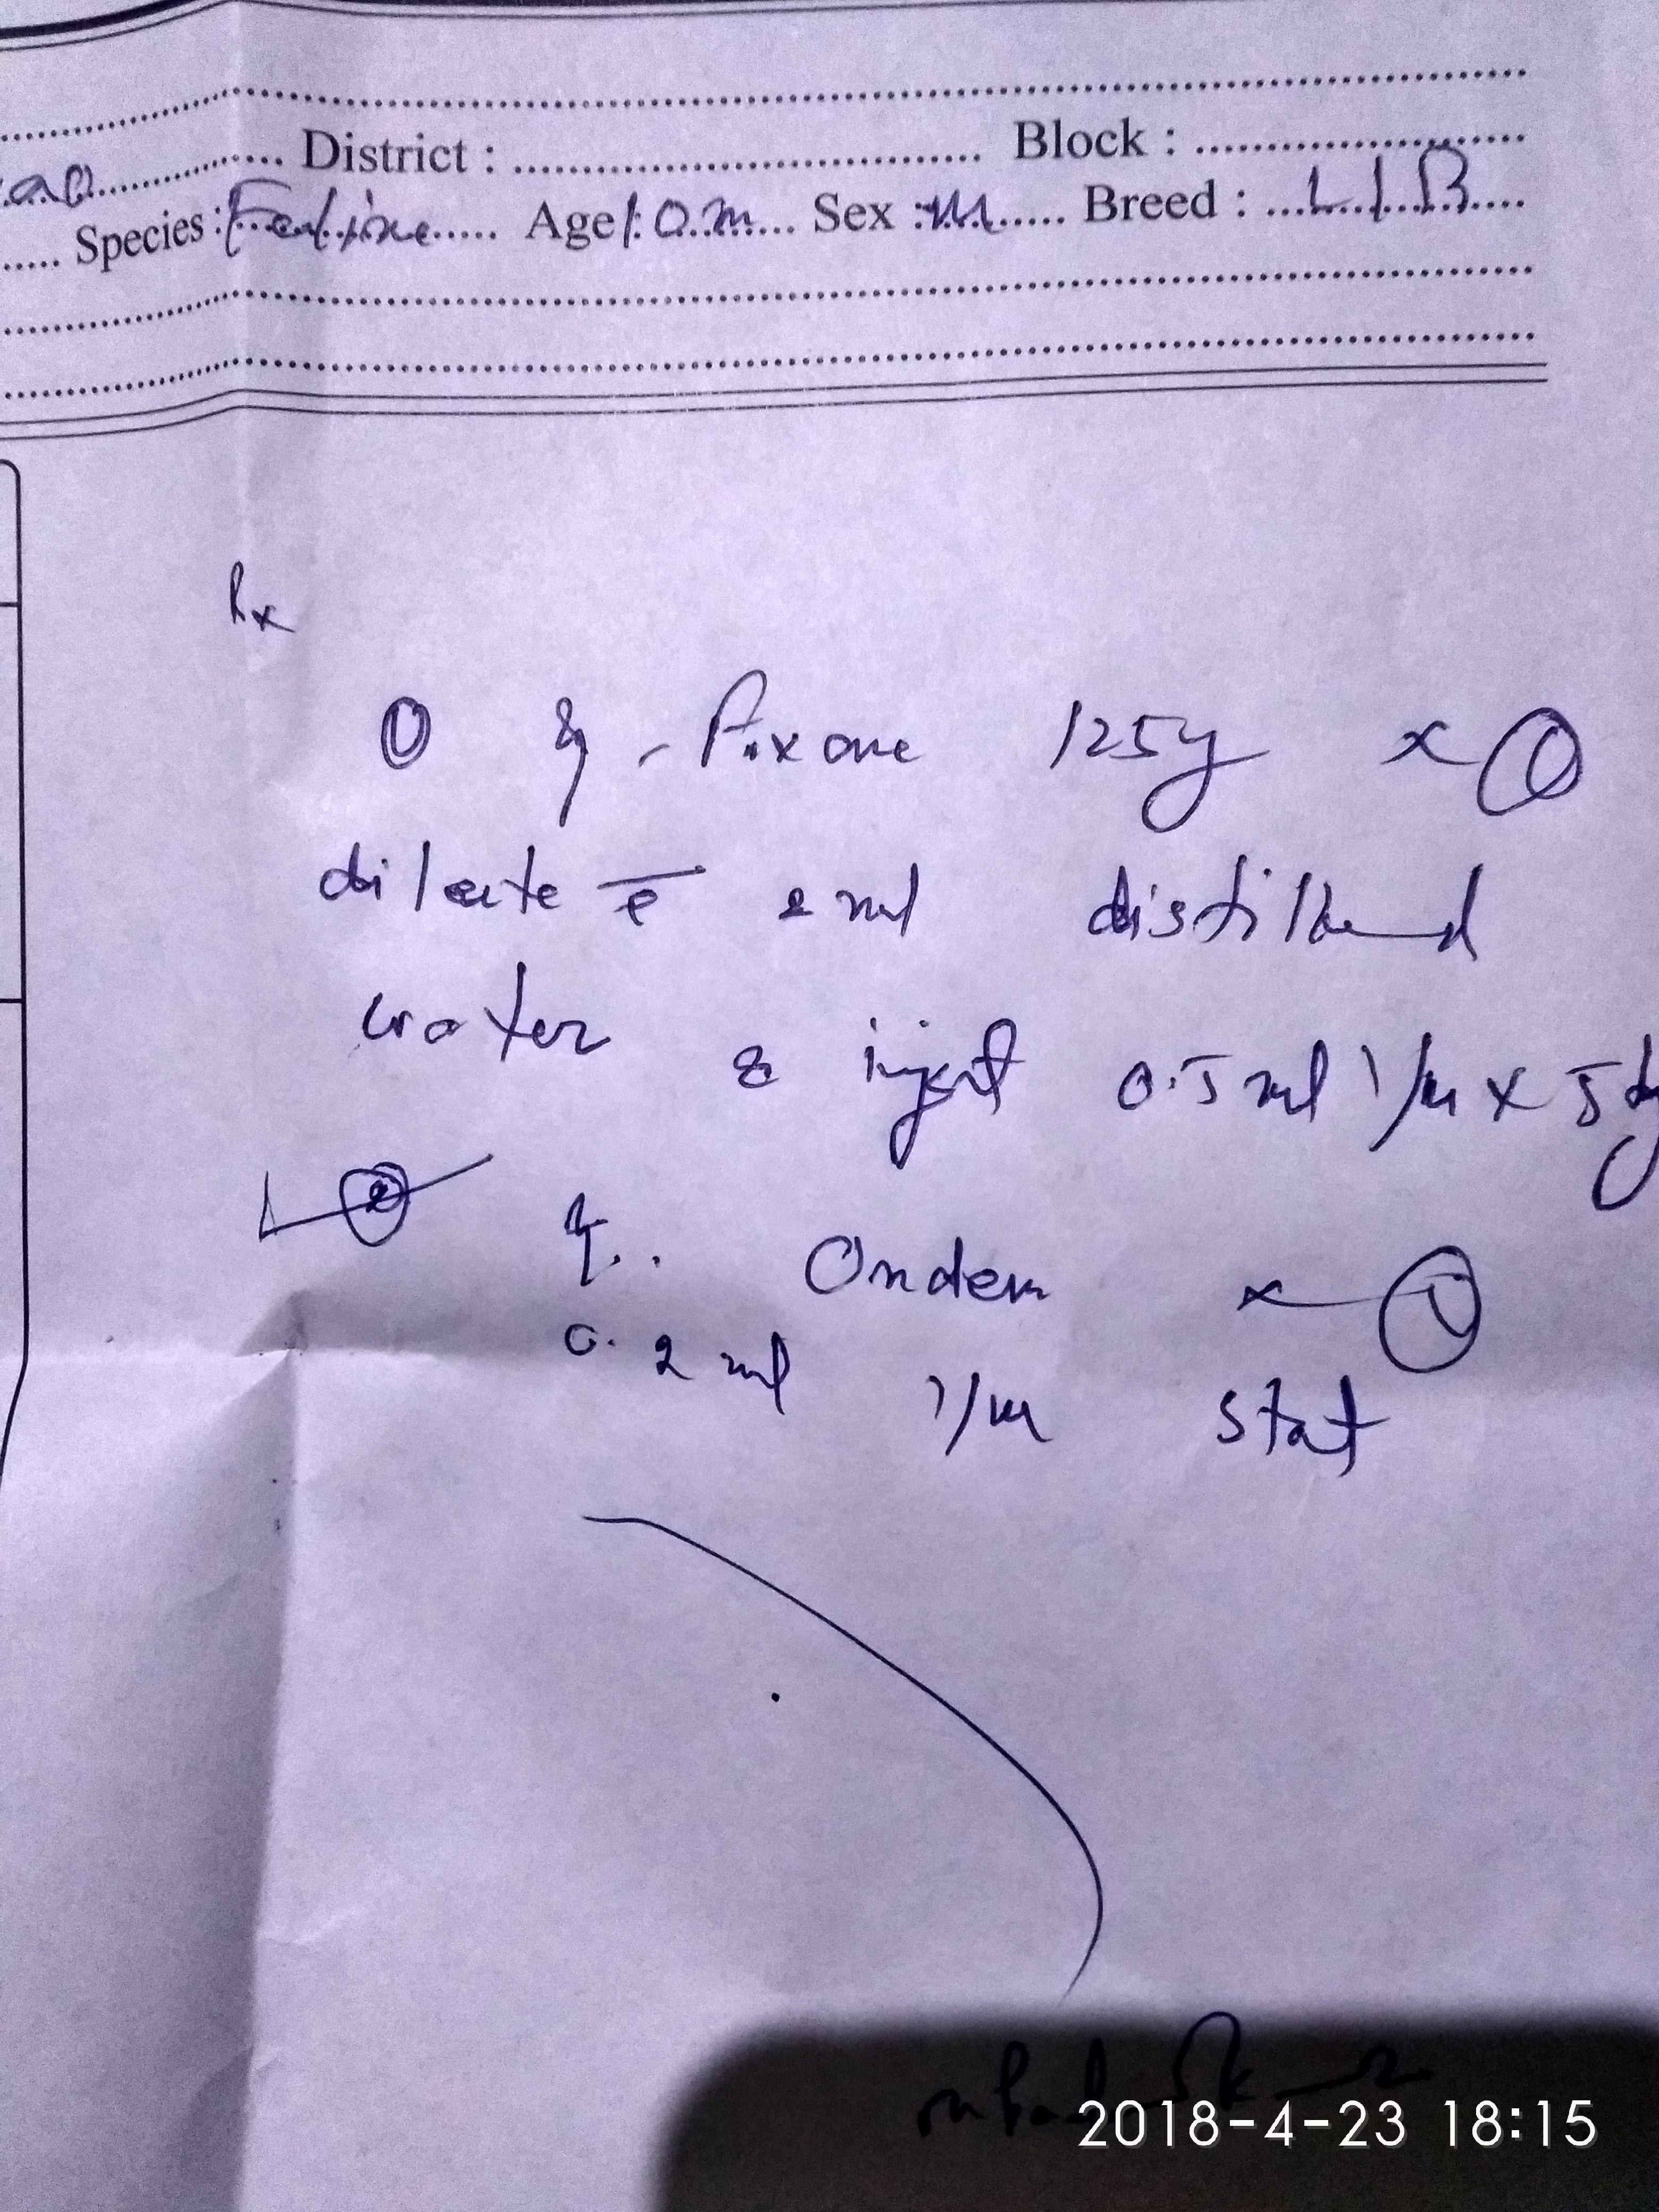 District : Block :
Species : Feline Age 10m Sex : M Breed : L/B
Rx
① Inj - Pixone 125mg x ①
dilute c̅ 2 ml distilled
water & inject 0.5 ml I/m x 5 dy
② Inj. Ondem x ①
0.2 ml I/m stat
2018-4-23 18:15